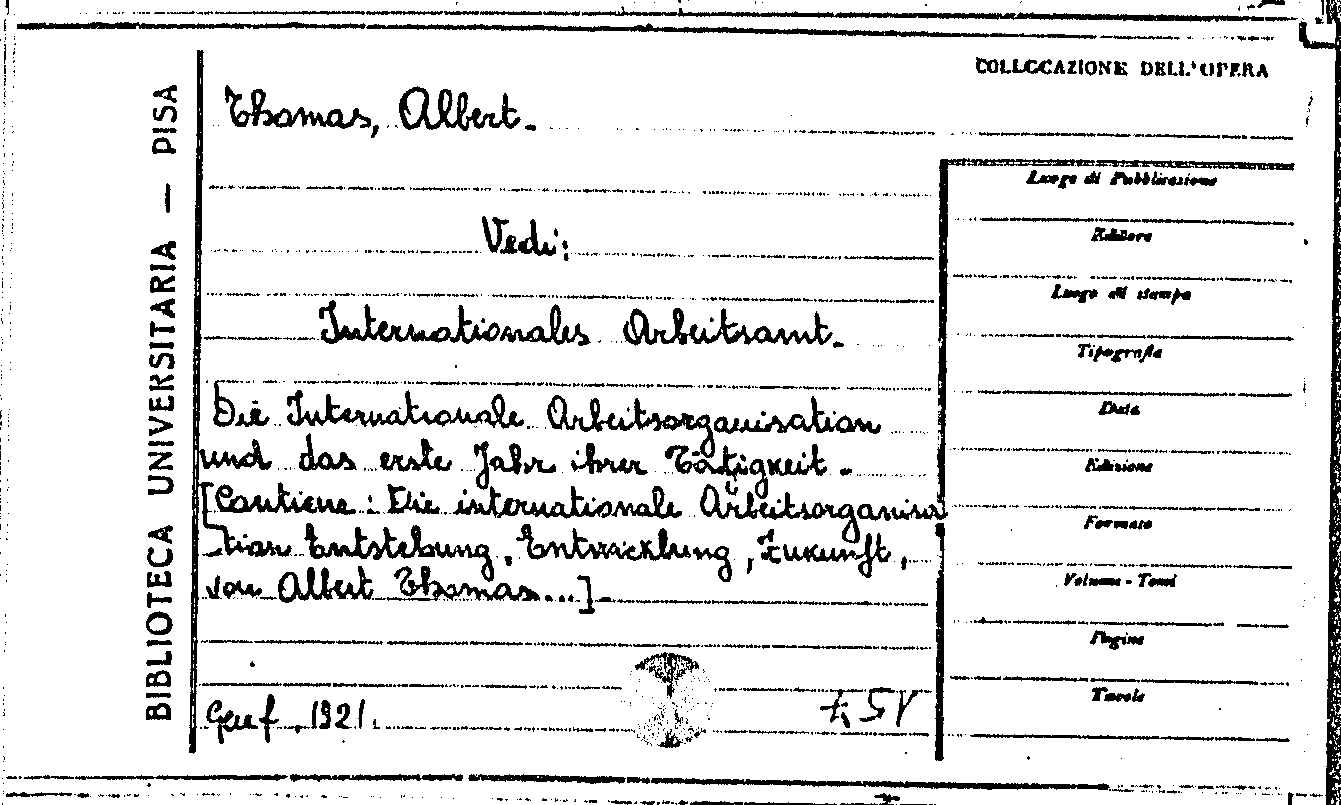 BIBLIOTECA UNIVERSITARIA — PISA
COLLOCAZIONE DELL'OPERA
Thomas, Albert.
Vedi:
Internationales Arbeitsamt.
Die Internationale Arbeitsorganisation
und das erste Jahr ihrer Tätigkeit.
[Contiene: Die internationale Arbeitsorganisa
tion Entstehung, Entwicklung, Zukunft,
von Albert Thomas...].
Genf. 1921.
Luogo di Pubblicazione
Editore
Luogo di stampa
Tipografia
Data
Edizione
Formato
Volume - Tomi
Pagine
Tavole